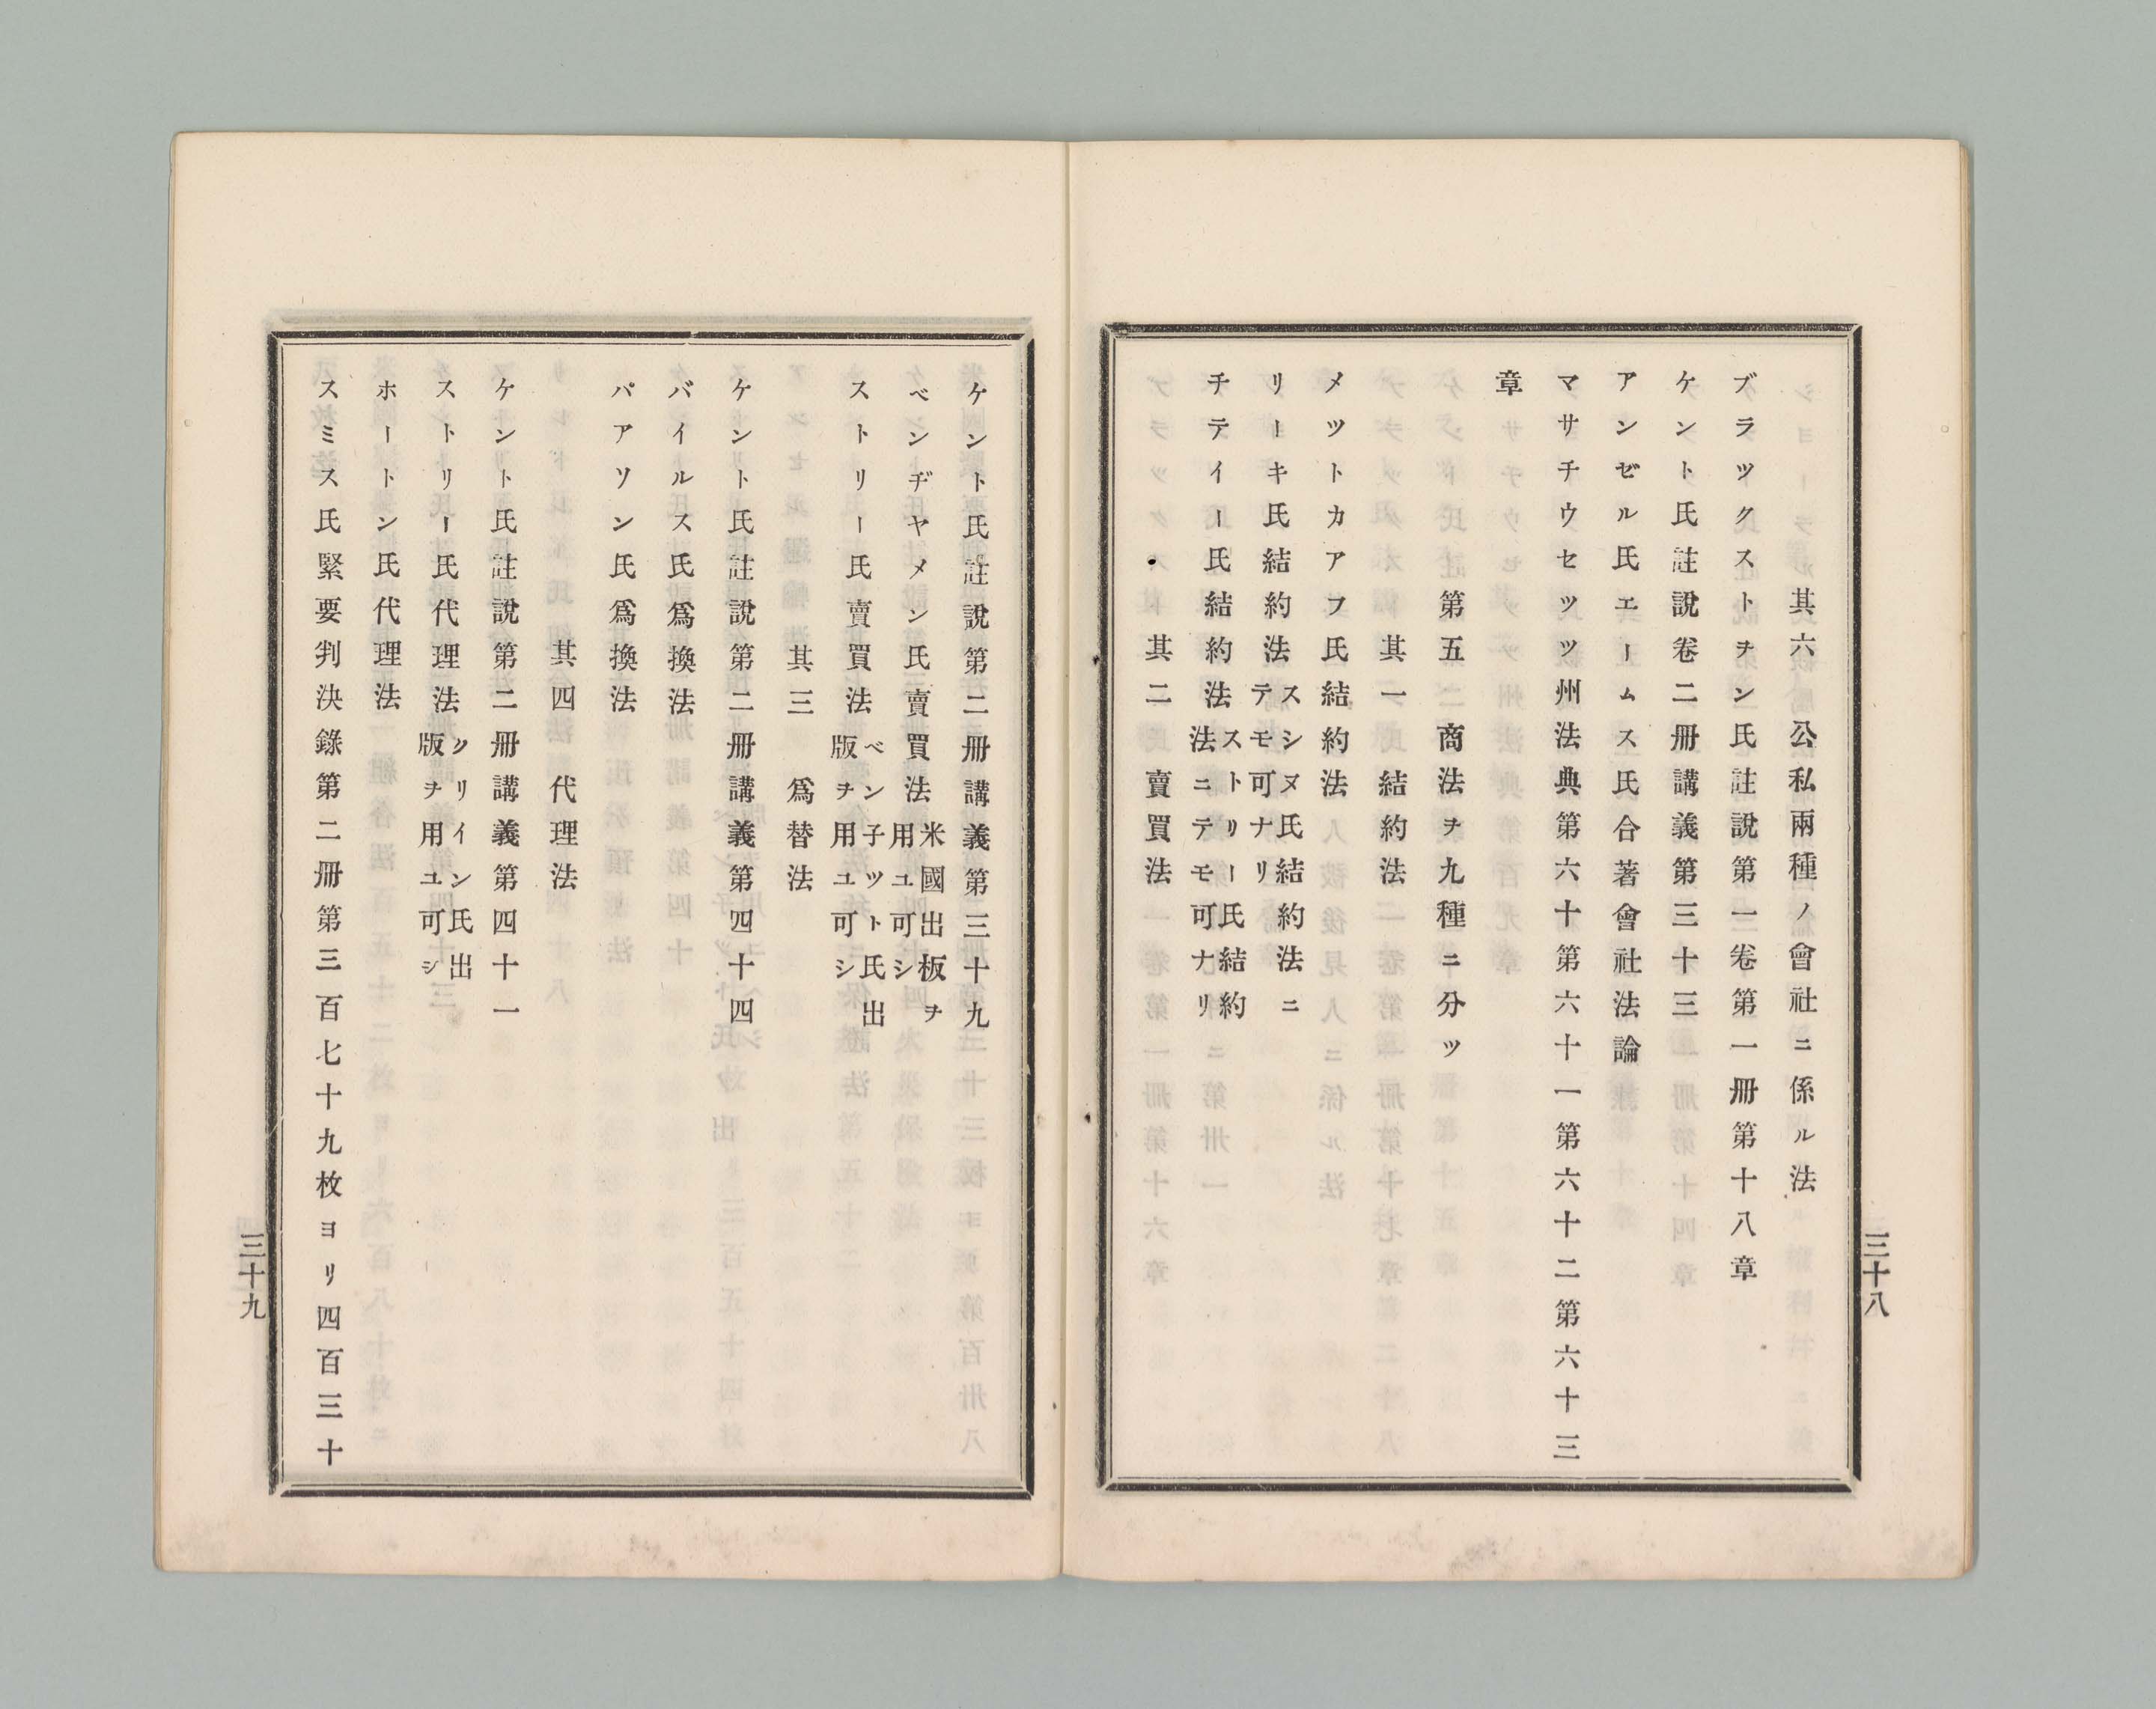 其六　公私兩種ノ會社ニ係ル法
ブラツクストヲン氏註說第一卷第一册第十八章
ケント氏註說卷二册講義第三十三
アンゼル氏エームス氏合著會社法論
マサチウセツツ州法典第六十第六十一第六十二第六十三
章
第五　商法ヲ九種ニ分ツ
其一　結約法
メツトカアフ氏結約法
リーキ氏結約法スシヌ氏結約法ニ
テモ可ナリ
チテイー氏結約法ストリー氏結約
法ニテモ可ナリ
其二　賣買法
三十八
ケント氏註說第二册講義第三十九
ベンヂヤメン氏賣買法米國出板ヲ
用ユ可シ
ストリー氏賣買法ベン子ツト氏出
版ヲ用ユ可シ
其三　爲替法
ケント氏註說第二册講義第四十四
バイルス氏爲換法
パアソン氏爲換法
其四　代理法
ケント氏註說第二册講義第四十一
ストリー氏代理法クリイン氏出
版ヲ用ユ可シ
ホートン氏代理法
スミス氏緊要判決錄第二册第三百七十九枚ヨリ四百三十
三十九